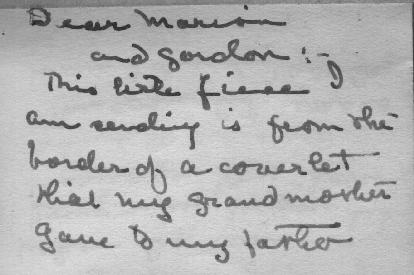 Dear Marion
and Gordon :-
This little piece I
am sending is from the
border of a coverlet
that my grandmother
gave to my father